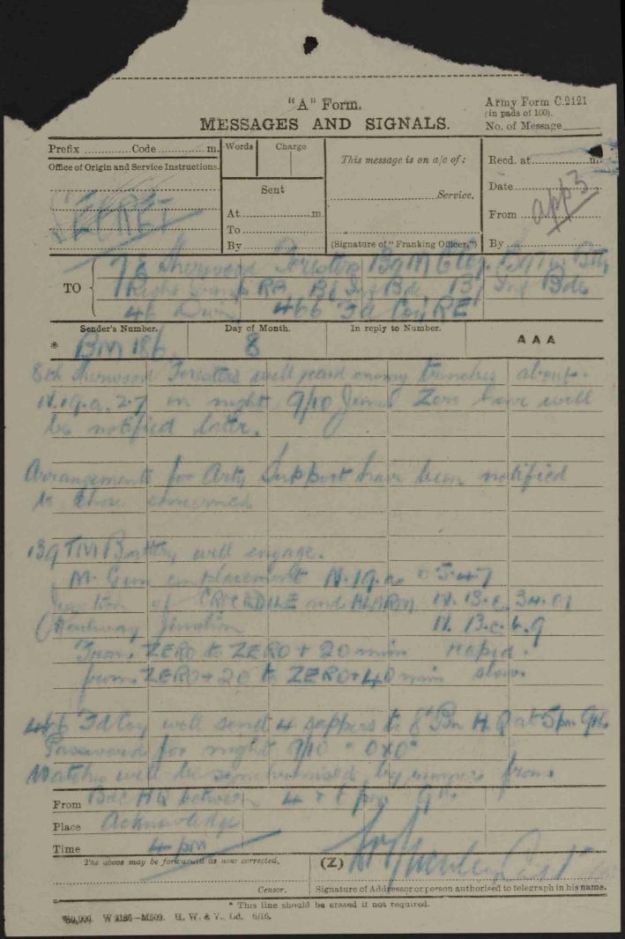 "A" Form.
MESSAGES AND SIGNALS.
Army Form C.2121
(in pads of 100).
No. of Message
Prefix Code m.
Words Charge
This message is on a/c of:
Recd. at m.
Office of Origin and Service Instructions.
SECRET
Sent
Service.
Date
At m.
From
app 3
To
By
(Signature of "Franking Officer.")
By
TO
Sherwood Foresters
Right Group RA Inf Bde Inf Bde
46 Divn 466 Fd Coy RE
Sender's Number.
Day of Month.
In reply to Number.
AAA
* BM 186 8
8th Sherwood Foresters will raid enemy trenches about
N.19.a.2.7 on night 9/10 Zero hour will
be notified later.
Arrangements for Arty Support have been notified
to those concerned
139 TM Battery will engage.
M. Gun emplacement N.19.a
Junction of CROCODILE and ALARM N.13.c.
Junction N.13.c.6.9
From ZERO to ZERO + 20 min rapid.
from ZERO + 20 to ZERO + 40 min slow.
466 Fd Coy will send 4 sappers to 8th Bn H.Q at 5 pm 9th
Password for night 9/10 - OXO
Watches will be synchronised by from
From Bde HQ between 4 9th
Place Acknowledge
Time 4 pm
The above may be forwarded as now corrected.
(Z)
Censor.
Signature of Addressor or person authorised to telegraph in his name.
* This line should be erased if not required.
H. W. & V., Ld. 6/16.